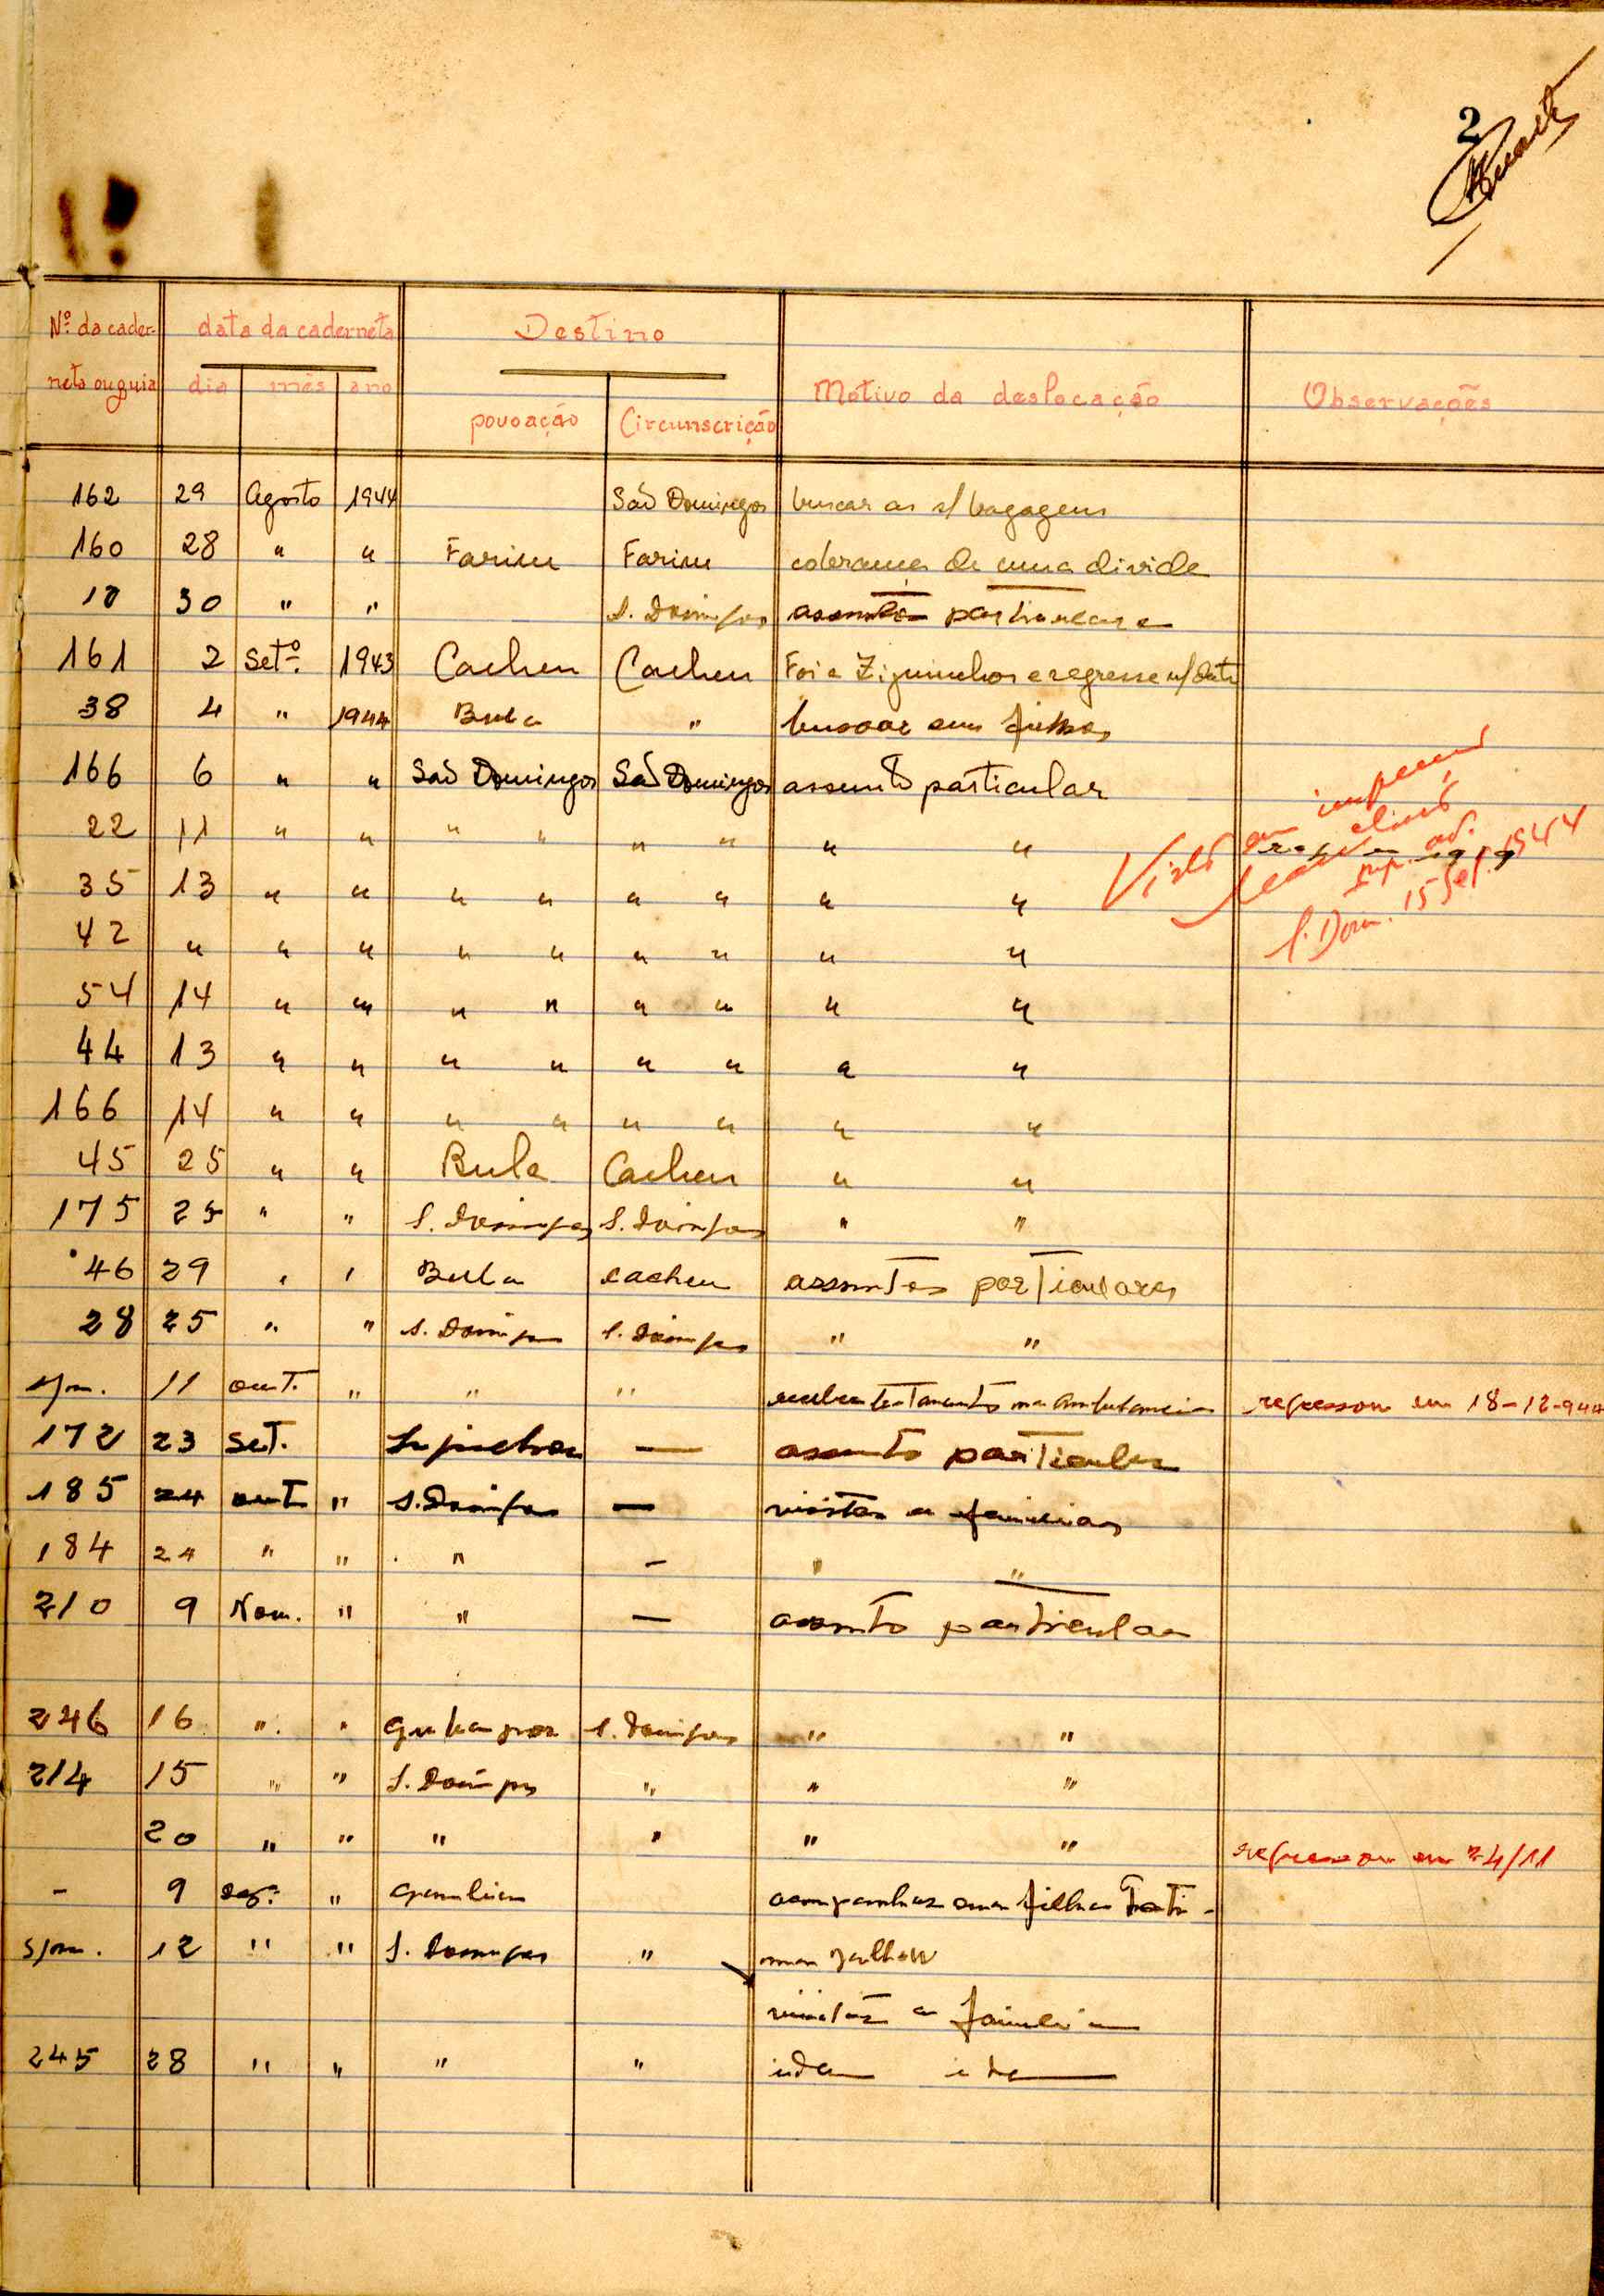 2
Nº da cader- data da caderneta Destino
neta ou guia dia mês ano Motivo da deslocação Observações
povoação Circunscrição
162 29 Agosto 1944 São Domingos buscar as s/ bagagens
160 28 " " Farim Farim cobrança de uma divida
30 " " S. Domingos assuntos particulares
161 2 Setº. 1943 Cacheu Cacheu Foi a Ziguinchor e regresse n/ data
38 4 " 1944 Bula " buscar
166 6 " " São Domingos São Domingos assunto particular
22 11 " " " " " " " "
35 13 " " " " " " " "
42 " " " " " " " " "
54 14 " " " " " " " "
44 13 " " " " " " " "
166 14 " " " " " " " "
45 25 " " Bula Cacheu " "
175 25 " " S. Domingos S. Domingos " "
46 29 " " Bula Cacheu assuntos particulares
28 25 " " S. Domingos S. Domingos " "
Visto em
S. Dom. 15 Set. 1944
s/n. 11 out. " " " na ambulancia regressou em 18-12-944
172 23 Set. — assunto particular
185 24 out " S. Domingos — visitar a familia
184 24 " " " — " "
210 9 Nov. " " — assunto particular
246 16 " " S. Domingos " "
214 15 " " S. Domingos " " "
20 " " " " " " regressou em 24/11
- 9 dez. " acompanhar uma filha
s/n. 12 " " S. Domingos "
visitar a familia
245 28 " " " " idem idem